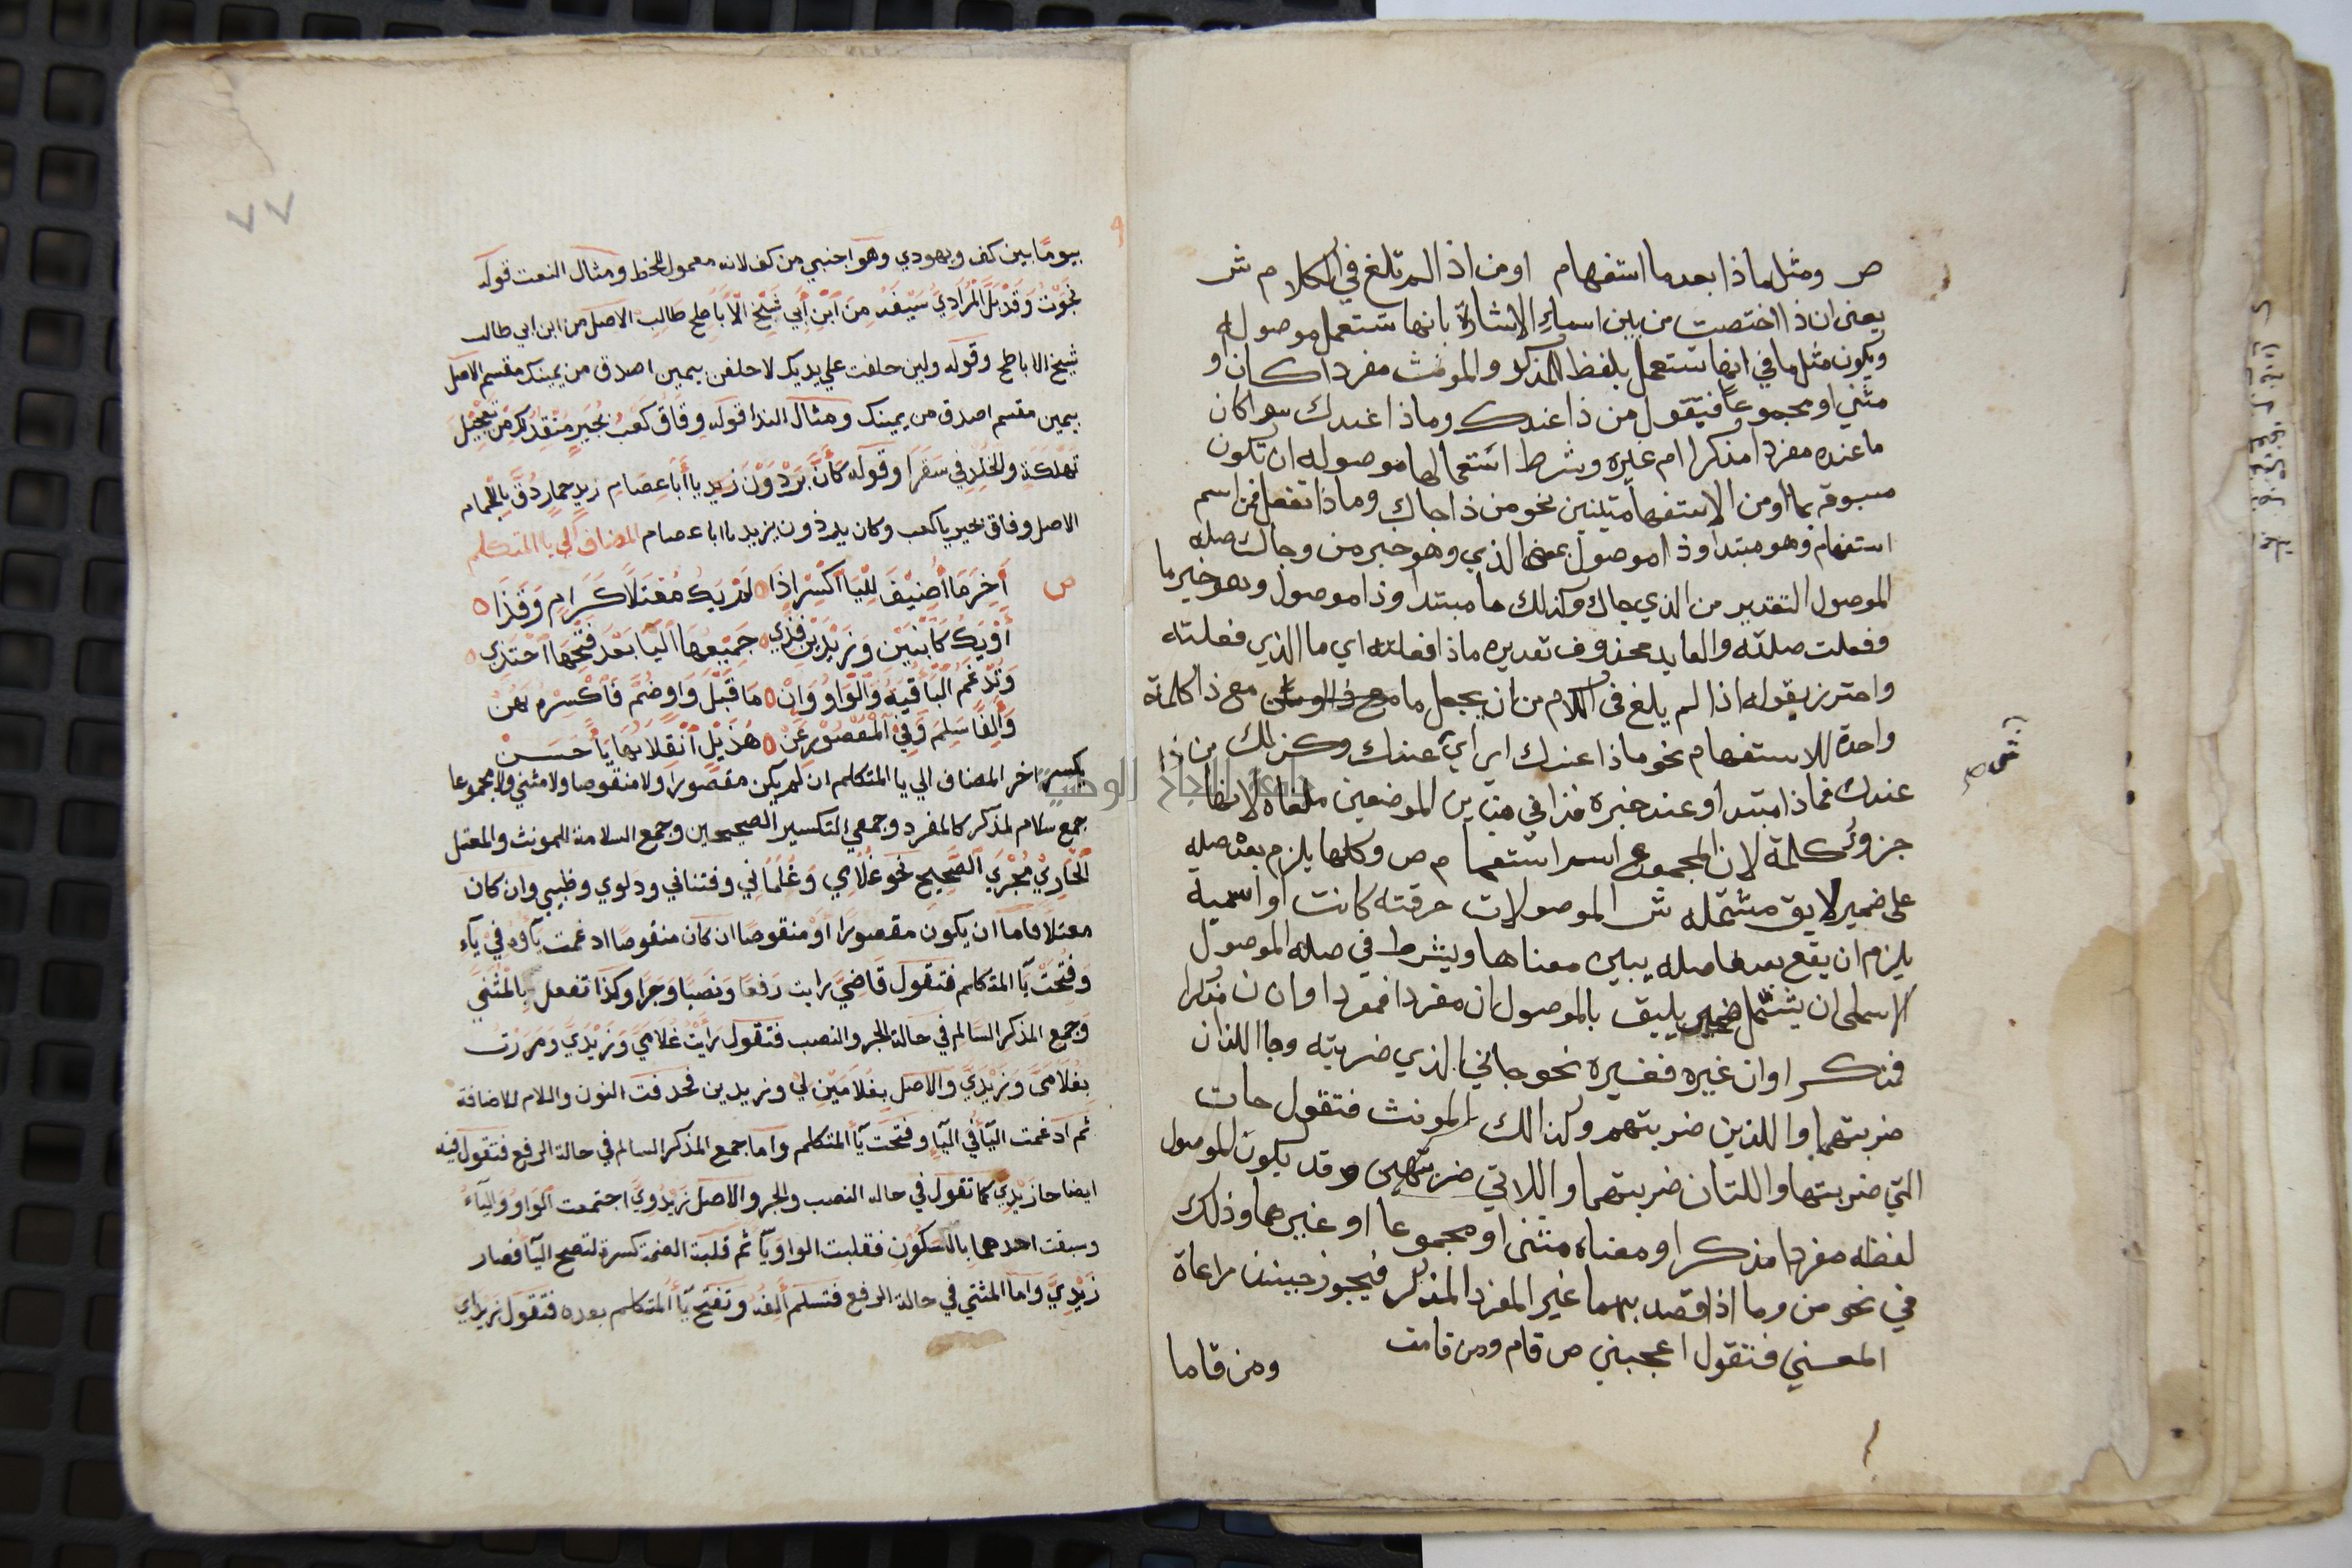 ص ومثل ماذا بعدما استفهام اومن اذا لم تلغ في الكلام ش
يعني ان ذا اختصت من بين اسماء الاشارة بانها تستعمل موصوله
ويكون مثل ما في انها تستعمل بلفظ المذكر والمونث مفردا كان او
مثني او مجموعا فيقول من ذا عندك وماذا عندك سوا كان
ما عنده مفردا مذكرا ام غيره وشرط استعمالها موصوله ان تكون
مسبوقة بما او من الاستفهاميتين نحو من ذا جاك وماذا تفعل فمن اسم
استفهام وهو مبتدا وذا موصول بمعنى الذي وهو خبر من وجاك صله
الموصول التقدير من الذي جاك وكذلك ما مبتدا وذا موصول وهو خبر ما
وفعلت صلته والعايد محذوف تقديره ماذا فعلته اي ما الذي فعلته
واحترز بقوله اذا لم يلغ في الكلام من ان يجعل ما مع ذا كلمة
واحدة للاستفهام نحو ماذا عندك اي اي عندك وكذلك من ذا
عندك فماذا مبتدا وعند خبره فذا في هذين الموضعين ملغاة لانها
جزؤ كلمة لان المجموع اسم استفهام ص وكلها يلزم بعده صله
على ضمير لايق مشتمله ش الموصولات حرفته كانت او اسميه
يلزم ان يقع بعدها صله يبين معناها ويشرط في صله الموصول
الاسمي ان يشتمل ضمير يليق بالموصول ان مفردا فمفردا وان مذكرا
فمذكرا وان غيره فغيره نحو جاني الذي ضربته وجا اللذان
ضربتهما والذين ضربتهم وكذالك المونث فتقول جات
التي ضربتها واللتان ضربتهما واللاتي ضربتهن وقد يكون الموصول
لفظه مفردا مذكرا ومعناه مثنى او مجموعا او غيرهما وذلك
في نحو من وما اذا قصد بهما غير المفرد المذكر فيجوز حينئذ مراعاة
المعني فتقول اعجبني من قام ومن قامت
ومن قاما
٧٧
بيوما بين كف ويهودي وهو اجنبي من كف لانه معمول للخط ومثال النعت قوله
نَجَوْتُ وَقَدْ بَلَّ الْمُرَادِيُّ سَيْفَهُ مِنَ ابْنِ أَبِي شَيْخِ الْأَبَاطِحِ طَالِبِ الاصل من ابن ابي طالب
شيخ الاباطح وقوله ولين حلفت علي يديك لاحلفن بيمين اصدق من يمينك مقسم الاصل
بيمين مقسم اصدق من يمينك ومثال الندا قوله وِفَاقُ كَعْبُ بُجَيْرٍ مُنْقِذٌ لَكَ مِنْ تَعْجِيلِ
تَهْلُكَةٍ والخلد في سَقَرَا وقوله كَأَنَّ بِرْذَوْنَ أَبَا عِصَامِ زيد حمار دُقَّ بِاللِّجَامِ
الاصل وفاق بجير يا كعب وكان برذون زيد يا ابا عصام المضاف الي يا المتكلم
ص آخِرَ مَا أُضِيفَ لِلْيَا اكْسِرْ اذَا لَمْ يَكُ مُعْتَلًّا كَرَامٍ وَقَذَا
أَوْ يَكُ كَابْنَيْنِ وَزَيْدِينَ فَذِي جَمِيعُهَا الْيَا بَعْدُ فَتْحُهَا احْتُذِي
وَتُدْغَمُ الْيَا فِيهِ وَالْوَاوُ وَانْ مَا قَبْلَ وَاوٍ ضُمَّ فَاكْسِرْهُ يَهُنْ
وَأَلِفًا سَلِّمْ وَفِي الْمَقْصُورِ عَنْ هُذَيْلٍ انْقِلَابُهَا يَاءً حَسَنْ
يكسر اخر المضاف الي يا المتكلم ان لم يكن مقصورا ولا منقوصا ولا مثني ولا مجموعا
جمع سلام لمذكر كالمفرد وجمعي التكسير الصحيحين وجمع السلامة للمونث والمعتل
الجَارِي مُجْرَي الصَّحِيح نحو غُلَامِي وَغِلْمَانِي وفتناتي ودلوي وظبيي وان كان
معتلا فاما ان يكون مقصورا او منقوصا ان كان منقوصا ادغمت يآؤه في يآء
وَفُتِحَتْ يَآ المتكلم فتقول قَاضِيَّ رايت رَفعا ونصَبا وَجَرا وكذا تفعل بِالْمُثَنَّي
وَجمع المذكر السالم في حالة الجر والنصب فتقول رَأَيْتُ غُلَامَيَّ وَزَيْدِيَّ وَمَرَرْتُ
بِغُلَامَيَّ وَزَيْدِيَّ والاصل بِغُلَامَيْنِ لِي وزيدين فحذفت النون واللام للاضافة
ثم ادغمت اليآ في اليآ وفتحت يآ المتكلم واما جمع المذكر السالم في حالة الرفع فتقول فيه
ايضا جا زَيْدِيَّ كما تقول في حاله النصب والجر والاصل زَيْدُويَ اجتمعت الواوُ وَالياءُ
وسبقت احدهما بِالسكُونِ فقلبت الواو يآ ثم قلبت الضمة كسرة لتصح اليآ فصار
زَيْدِيَّ وَاما المثني في حالة الرفع فتسلم أَلِفُهُ وتفتح يآ المتكلم بعده فتقول زيداي